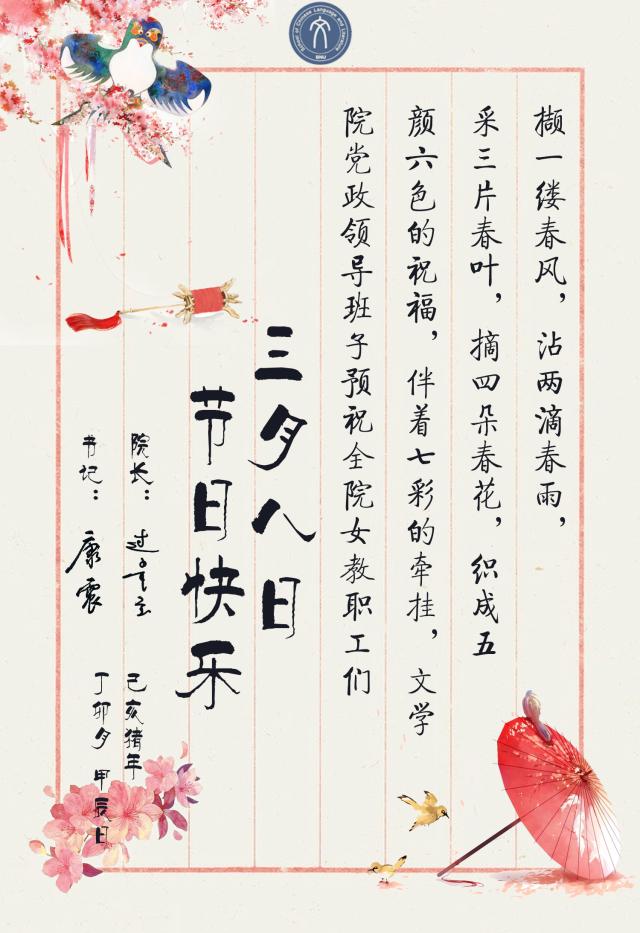 School of Chinese Language and Literature
文
BNU
撷一缕春风，沾两滴春雨，
采三片春叶，摘四朵春花，织成五
颜六色的祝福，伴着七彩的牵挂，文学
院党政领导班子预祝全院女教职工们
三月八日
节日快乐
院长：
书记：康震
己亥猪年
丁卯月 甲辰日